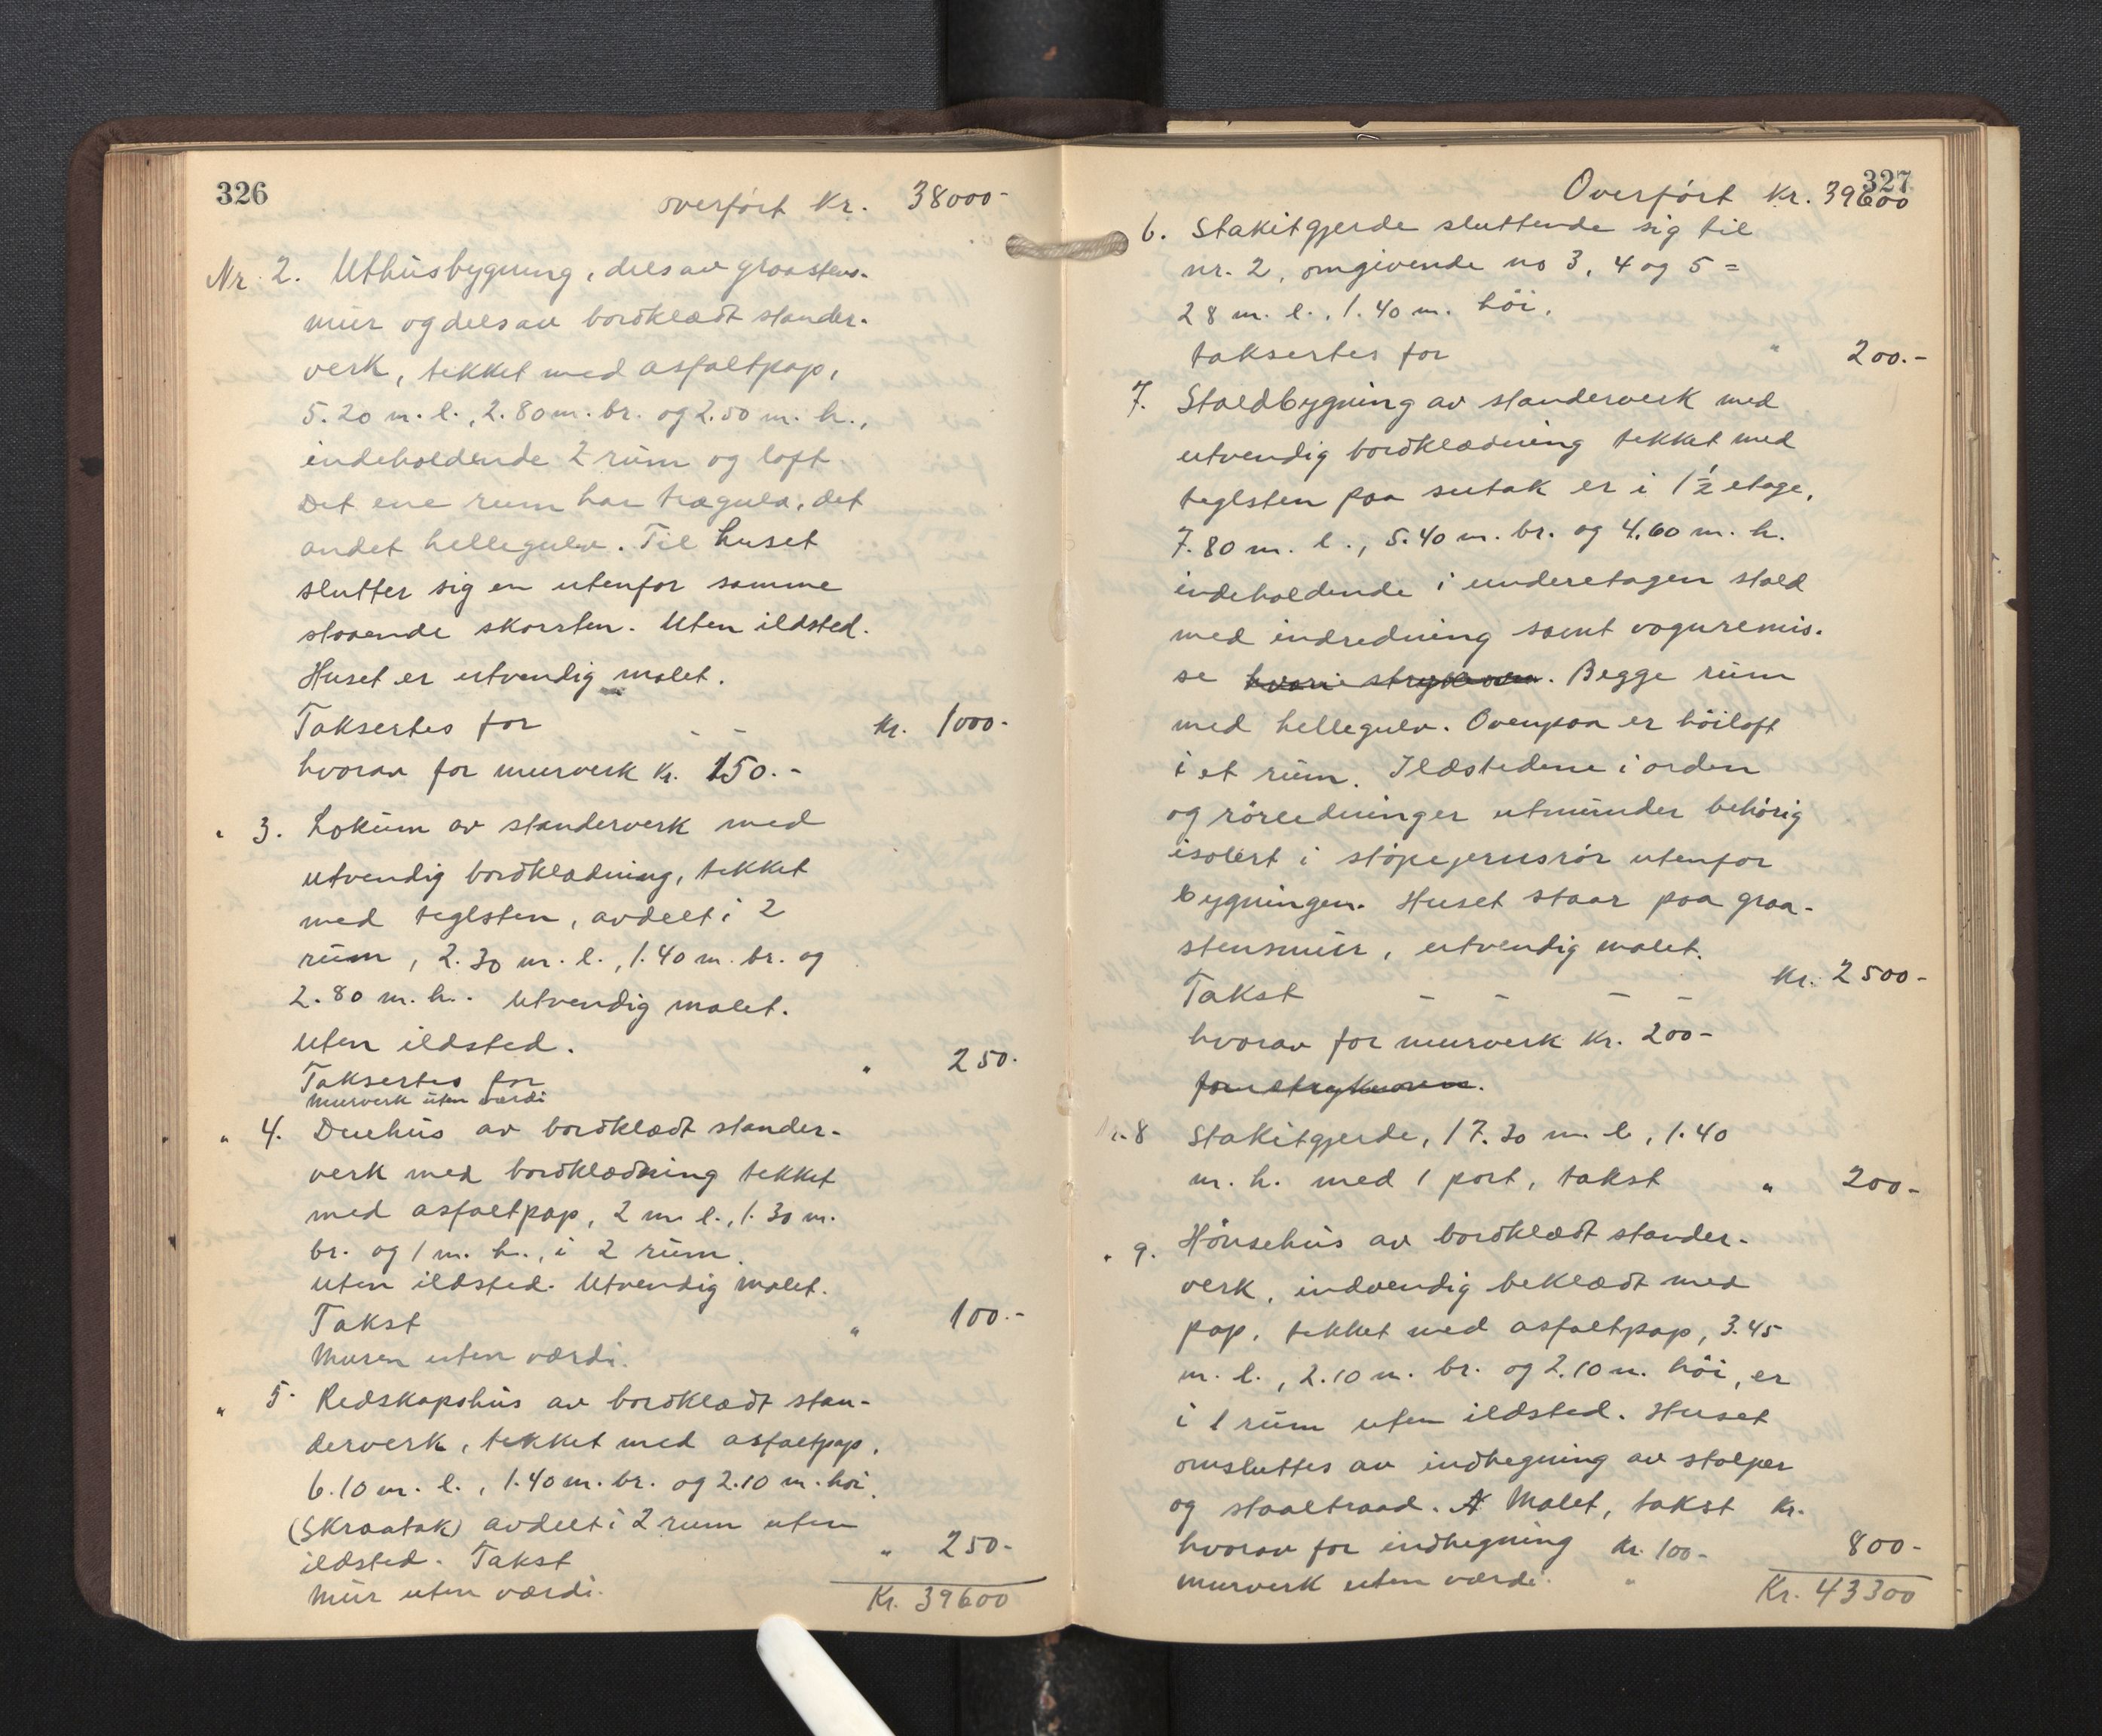 326
overfört Kr. 38000-
Nr. 2. Uthusbygning, dels av graastens-
mur og dels av bordklædt stander-
verk, tekket med asfaltpap,
5.20 m. l., 2.80 m. br. og 2.50 m. h.,
indeholdende 2 rum og loft.
Det ene rum har trægulv, det
andet hellegulv. Til huset
slutter sig en utenfor samme
staaende skorsten. Uten ildsted.
Huset er utvendig malet.
Taksertes for - - Kr. 1000-
hvorav for murverk Kr. 150.-
" 3. Lokum av standerverk med
utvendig bordklædning, tekket
med teglsten, avdelt i 2
rum, 2.30 m. l., 1.40 m. br. og
2.80 m. h.. Utvendig malet.
Uten ildsted.
Taksertes for " 250.
Murverk uten værdi
" 4. Duehus av bordklædt stander-
verk med bordklædning tekket
med asfaltpap, 2 m l., 1.30 m.
br. og 1 m. h., i 2 rum.
Uten ildsted. Utvendig malet.
Takst " 100.-
Muren uten værdi.
" 5. Redskapshus av bordklædt stan-
derverk, tekket med asfaltpap,
6.10 m. l., 1.40 m. br. og 2.10 m. höi.
(Skraatak) avdelt i 2 rum uten
ildsted. Takst " 250-
Mur uten værdi. Kr. 39600
327
Overfört Kr. 39600
6. Stakitgjerde sluttende sig til
nr. 2, omgivende no 3, 4 og 5 =
28 m. l., 1.40 m. höi,
taksertes for " 200.-
7. Staldbygning av standerverk med
utvendig bordklædning tekket med
teglsten paa sutak er i 1½ etage,
7.80 m. l., 5.40 m. br. og 4.60 m. h.
indeholdende i underetagen stald
med indredning samt vognremis-
se hvori strykeovn. Begge rum
med hellegulv. Ovenpaa er höiloft
i et rum. Ildstedene i orden
og rörledninger utmunder behörig
isolert i stöpejernsrör utenfor
bygningen. Huset staar paa graa-
stensmur, utvendig malet.
Takst - - - - Kr. 2500-
hvorav for murverk Kr. 200-
for strykeovn.
" 8 Stakitgjerde, 17.30 m. l, 1.40
m. h. med 1 port, takst " 200-
" 9. Hönsehus av bordklædt stander-
verk, indvendig beklædt med
pap, tekket med asfaltpap, 3.45
m. l., 2.10 m. br. og 2.10 m. höi, er
i 1 rum uten ildsted. Huset
omsluttes av indhegning av stolper
og staaltraad. Malet, takst Kr.
hvorav for indhegning Kr. 100- 800-
Murverk uten værdi. " Kr. 43300